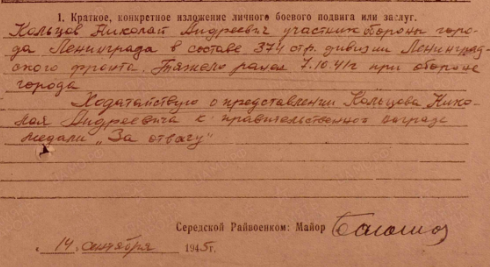 1. Краткое, конкретное изложение личного боевого подвига или заслуг.
Кольцов Николай Андреевич участник обороны горо-
да Ленинграда в составе 374 стр. дивизии Ленинград-
ского фронта. Тяжело ранен 7.10.41г при обороне
города
Ходатайствую о представлении Кольцова Нико-
лая Андреевича к правительственной награде
медали „За отвагу"
Середской Райвоенком: Майор
„14 сентября 1945г.